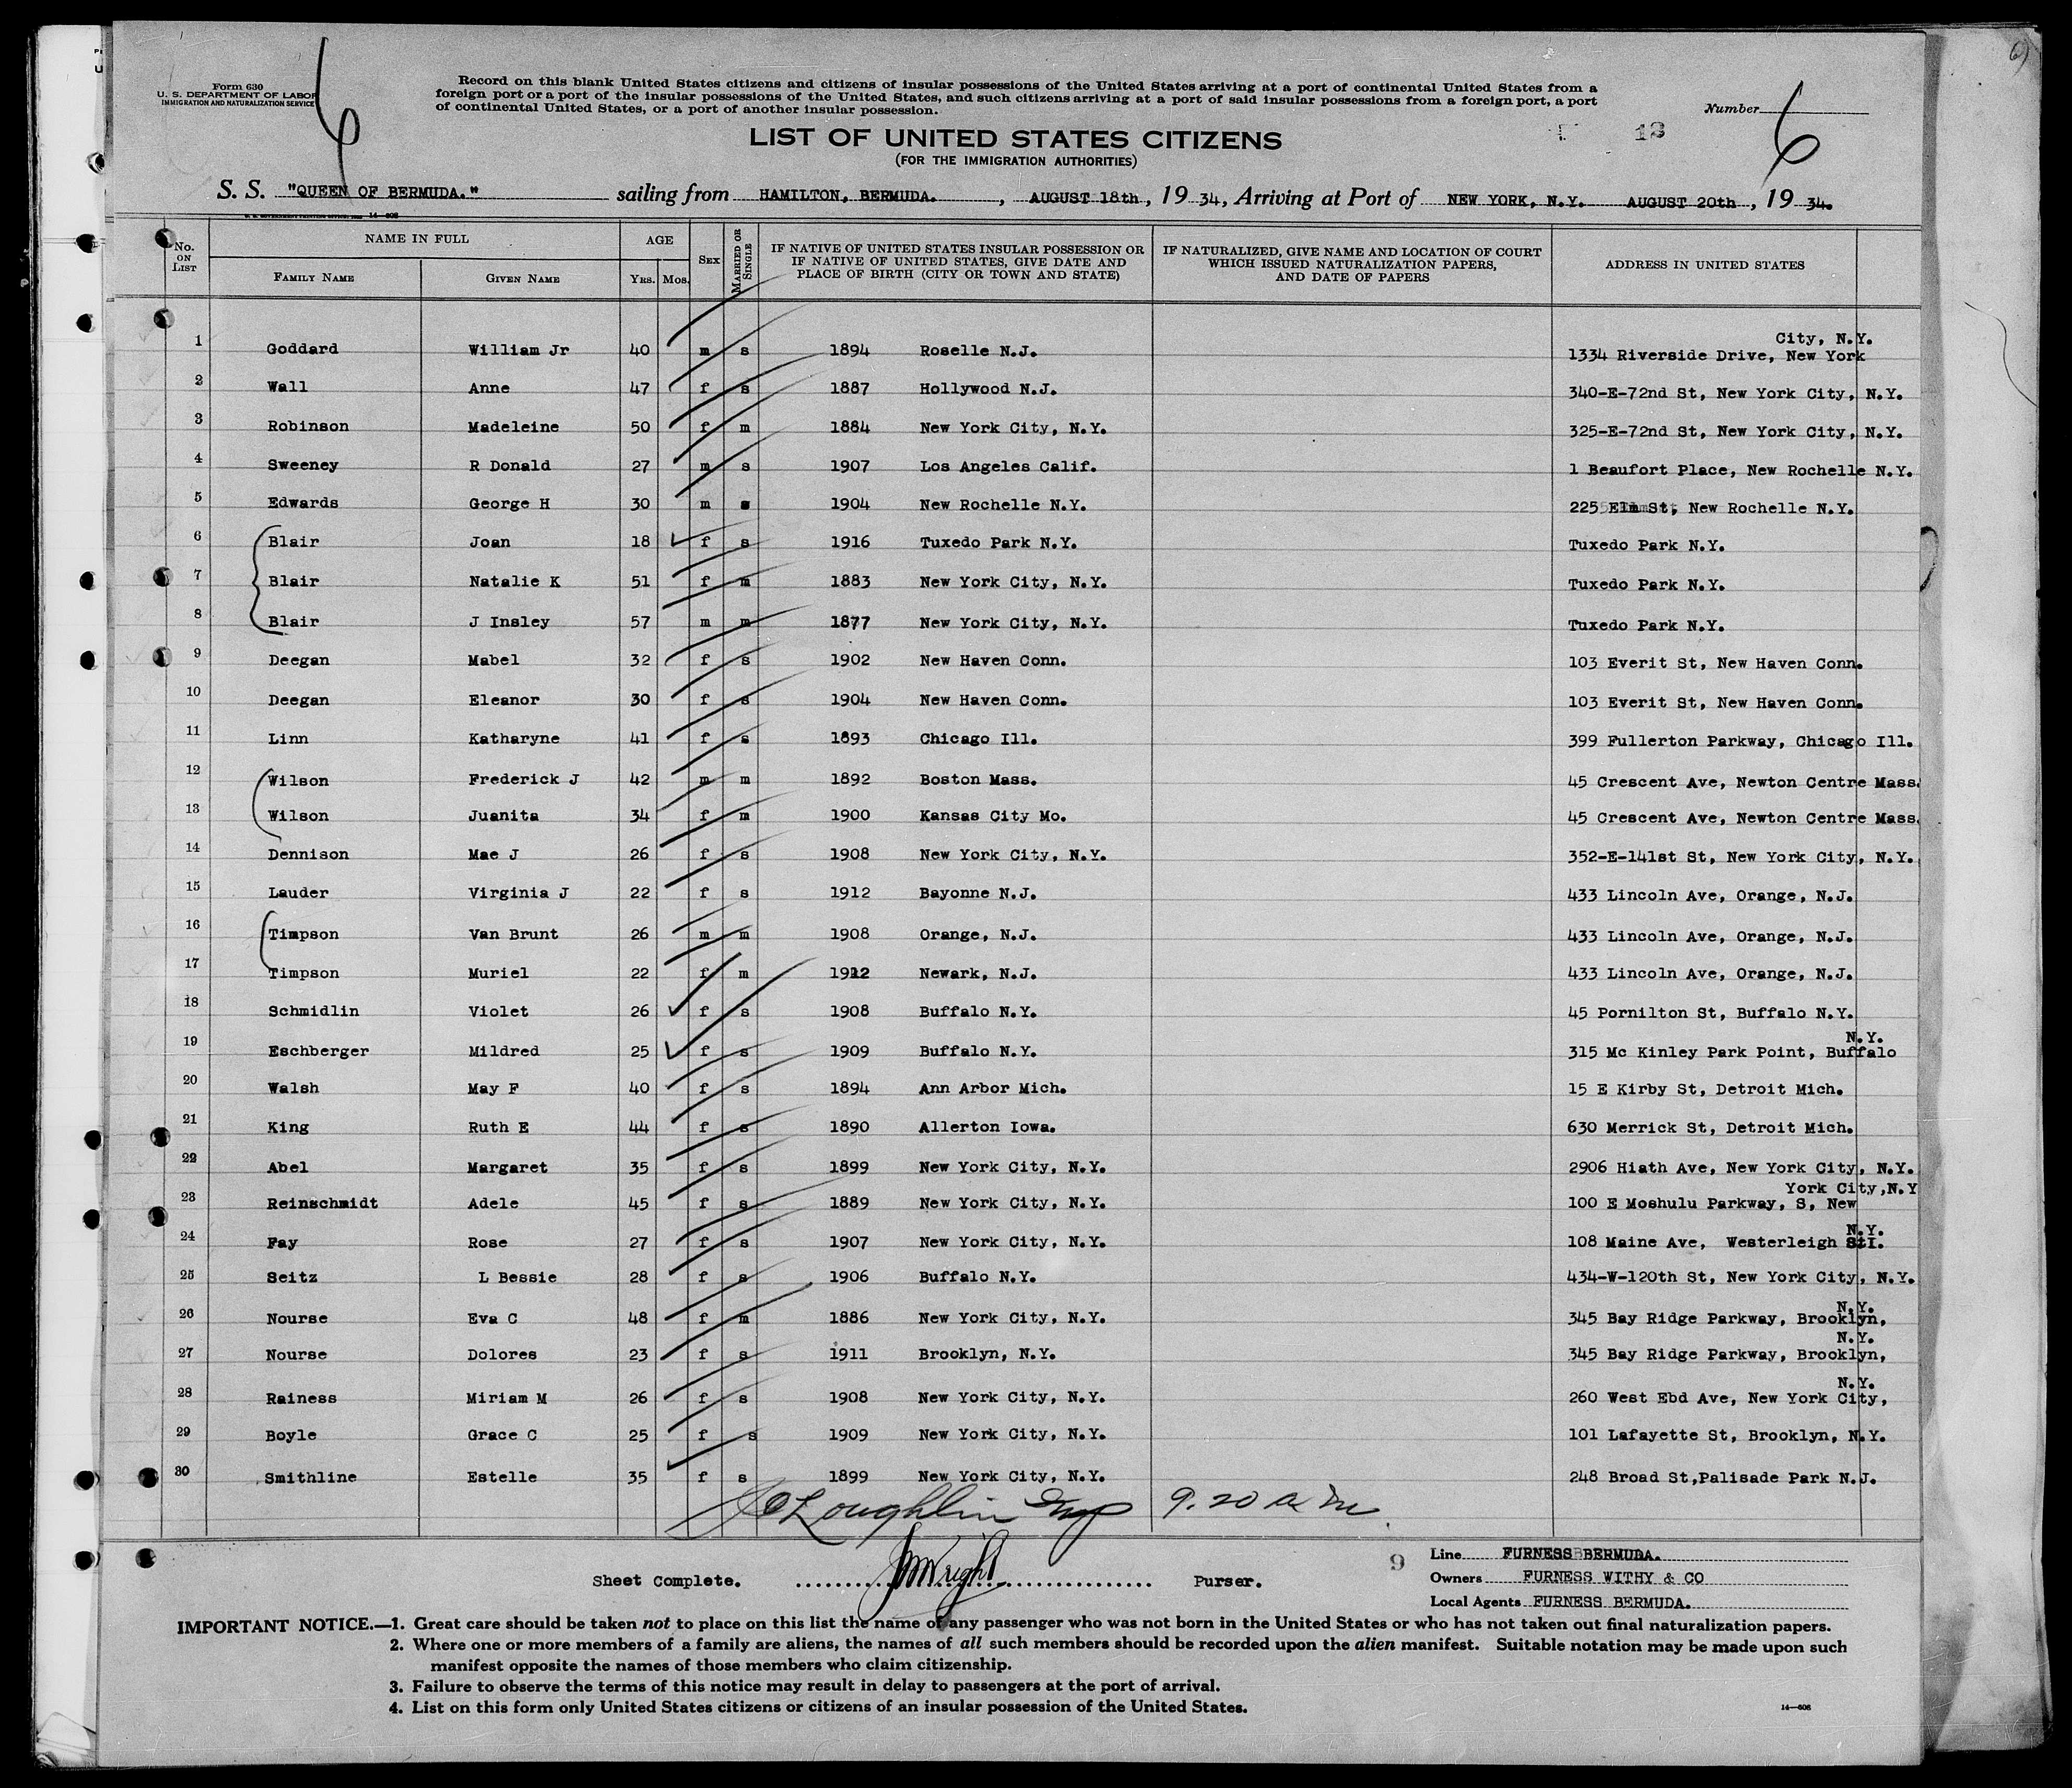 Form 630
U. S. DEPARTMENT OF LABOR
IMMIGRATION AND NATURALIZATION SERVICE
6
Record on this blank United States citizens and citizens of insular possessions of the United States arriving at a port of continental United States from a
foreign port or a port of the insular possessions of the United States, and such citizens arriving at a port of said insular possessions from a foreign port, a port
of continental United States, or a port of another insular possession.
Number 6
LIST OF UNITED STATES CITIZENS
(FOR THE IMMIGRATION AUTHORITIES)
S. S. "QUEEN OF BERMUDA." sailing from HAMILTON, BERMUDA. , AUGUST 18th, 19 34, Arriving at Port of NEW YORK, N.Y. AUGUST 20th, 19 34.
No. ON LIST | NAME IN FULL | AGE | SEX | MARRIED OR SINGLE | IF NATIVE OF UNITED STATES INSULAR POSSESSION OR IF NATIVE OF UNITED STATES, GIVE DATE AND PLACE OF BIRTH (CITY OR TOWN AND STATE) | IF NATURALIZED, GIVE NAME AND LOCATION OF COURT WHICH ISSUED NATURALIZATION PAPERS, AND DATE OF PAPERS | ADDRESS IN UNITED STATES
FAMILY NAME | GIVEN NAME | YRS. | MOS.
1 Goddard William Jr 40 m s 1894 Roselle N.J. 1334 Riverside Drive, New York City, N.Y.
2 Wall Anne 47 f s 1887 Hollywood N.J. 340-E-72nd St, New York City, N.Y.
3 Robinson Madeleine 50 f m 1884 New York City, N.Y. 325-E-72nd St, New York City, N.Y.
4 Sweeney R Donald 27 m s 1907 Los Angeles Calif. 1 Beaufort Place, New Rochelle N.Y.
5 Edwards George H 30 m s 1904 New Rochelle N.Y. 225 Elm St, New Rochelle N.Y.
6 Blair Joan 18 f s 1916 Tuxedo Park N.Y. Tuxedo Park N.Y.
7 Blair Natalie K 51 f m 1883 New York City, N.Y. Tuxedo Park N.Y.
8 Blair J Insley 57 m m 1877 New York City, N.Y. Tuxedo Park N.Y.
9 Deegan Mabel 32 f s 1902 New Haven Conn. 103 Everit St, New Haven Conn.
10 Deegan Eleanor 30 f s 1904 New Haven Conn. 103 Everit St, New Haven Conn.
11 Linn Katharyne 41 f s 1893 Chicago Ill. 399 Fullerton Parkway, Chicago Ill.
12 Wilson Frederick J 42 m m 1892 Boston Mass. 45 Crescent Ave, Newton Centre Mass.
13 Wilson Juanita 34 f m 1900 Kansas City Mo. 45 Crescent Ave, Newton Centre Mass.
14 Dennison Mae J 26 f s 1908 New York City, N.Y. 352-E-141st St, New York City, N.Y.
15 Lauder Virginia J 22 f s 1912 Bayonne N.J. 433 Lincoln Ave, Orange, N.J.
16 Timpson Van Brunt 26 m m 1908 Orange, N.J. 433 Lincoln Ave, Orange, N.J.
17 Timpson Muriel 22 f m 1912 Newark, N.J. 433 Lincoln Ave, Orange, N.J.
18 Schmidlin Violet 26 f s 1908 Buffalo N.Y. 45 Pornilton St, Buffalo N.Y.
19 Eschberger Mildred 25 f s 1909 Buffalo N.Y. 315 Mc Kinley Park Point, Buffalo N.Y.
20 Walsh May F 40 f s 1894 Ann Arbor Mich. 15 E Kirby St, Detroit Mich.
21 King Ruth E 44 f s 1890 Allerton Iowa. 630 Merrick St, Detroit Mich.
22 Abel Margaret 35 f s 1899 New York City, N.Y. 2906 Hiath Ave, New York City, N.Y.
23 Reinschmidt Adele 45 f s 1889 New York City, N.Y. 100 E Moshulu Parkway, S, New York City,N.Y
24 Fay Rose 27 f s 1907 New York City, N.Y. 108 Maine Ave, Westerleigh S.I. N.Y.
25 Seitz L Bessie 28 f s 1906 Buffalo N.Y. 434-W-120th St, New York City, N.Y.
26 Nourse Eva C 48 f m 1886 New York City, N.Y. 345 Bay Ridge Parkway, Brooklyn, N.Y.
27 Nourse Dolores 23 f s 1911 Brooklyn, N.Y. 345 Bay Ridge Parkway, Brooklyn, N.Y.
28 Rainess Miriam M 26 f s 1908 New York City, N.Y. 260 West Ebd Ave, New York City, N.Y.
29 Boyle Grace C 25 f s 1909 New York City, N.Y. 101 Lafayette St, Brooklyn, N.Y.
30 Smithline Estelle 35 f s 1899 New York City, N.Y. 248 Broad St,Palisade Park N.J.
O'Loughlin Insp 9.20 a m
9
Line FURNESS BERMUDA.
Sheet Complete. Wright Purser.
Owners FURNESS WITHY & CO
Local Agents FURNESS BERMUDA.
IMPORTANT NOTICE.—1. Great care should be taken not to place on this list the name of any passenger who was not born in the United States or who has not taken out final naturalization papers.
2. Where one or more members of a family are aliens, the names of all such members should be recorded upon the alien manifest. Suitable notation may be made upon such
manifest opposite the names of those members who claim citizenship.
3. Failure to observe the terms of this notice may result in delay to passengers at the port of arrival.
4. List on this form only United States citizens or citizens of an insular possession of the United States.
14—608